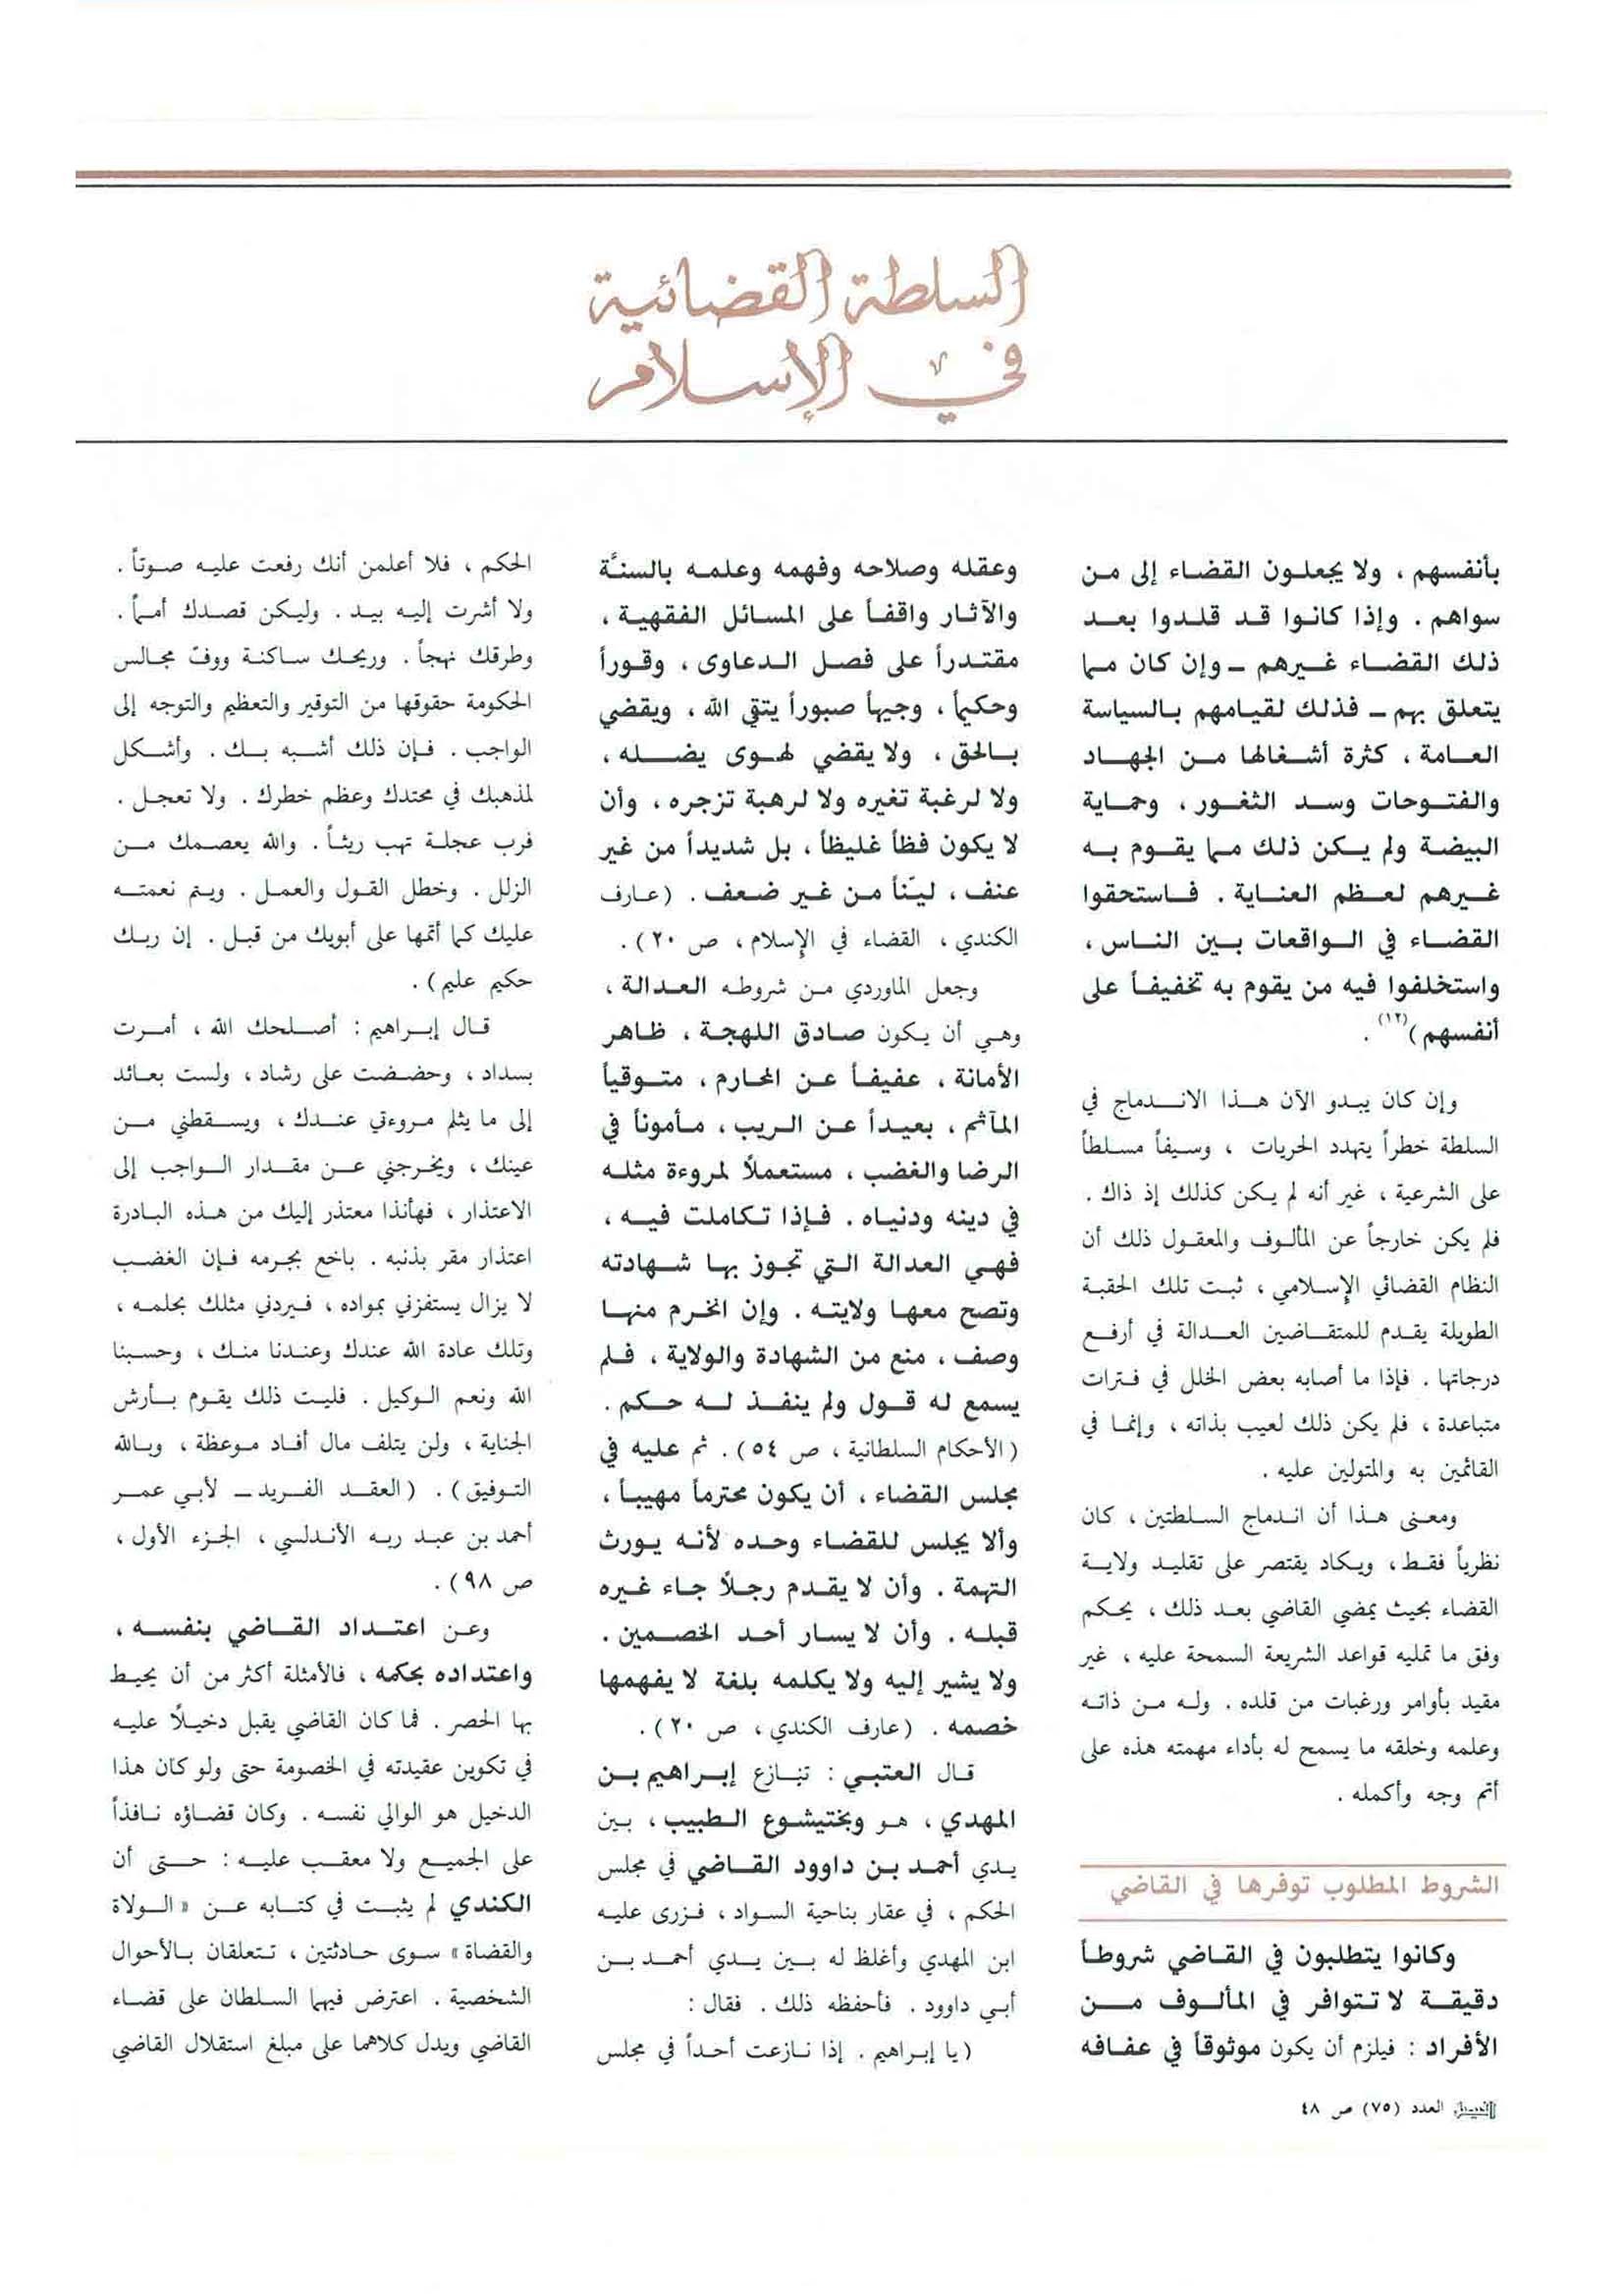 السلطة القضائية
في الإسلام
بأنفسهم ، ولا يجعلون القضاء إلى من
سواهم . وإذا كانوا قد قلدوا بعد
ذلك القضاء غيرهم – وإن كان مما
يتعلق بهم – فذلك لقيامهم بالسياسة
العامة ، كثرة أشغالها من الجهاد
والفتوحات وسد الثغور ، وحماية
البيضة ولم يكن ذلك مما يقوم به
غيرهم لعظم العناية . فاستحقوا
القضاء في الواقعات بين الناس ،
واستخلفوا فيه من يقوم به تخفيفاً على
أنفسهم )(١٢) .
وإن كان يبدو الآن هذا الاندماج في
السلطة خطراً يتهدد الحريات ، وسيفاً مسلطاً
على الشرعية ، غير أنه لم يكن كذلك إذ ذاك .
فلم يكن خارجاً عن المألوف والمعقول ذلك أن
النظام القضائي الإسلامي ، ثبت تلك الحقبة
الطويلة يقدم للمتقاضين العدالة في أرفع
درجاتها . فإذا ما أصابه بعض الخلل في فترات
متباعدة ، فلم يكن ذلك لعيب بذاته ، وإنما في
القائمين به والمتولين عليه .
ومعنى هذا أن اندماج السلطتين ، كان
نظرياً فقط ، ويكاد يقتصر على تقليد ولاية
القضاء بحيث يمضي القاضي بعد ذلك ، يحكم
وفق ما تمليه قواعد الشريعة السمحة عليه ، غير
مقيد بأوامر ورغبات من قلده . وله من ذاته
وعلمه وخلقه ما يسمح له بأداء مهمته هذه على
أتم وجه وأكمله .
الشروط المطلوب توفرها في القاضي
وكانوا يتطلبون في القاضي شروطاً
دقيقة لا تتوافر في المألوف من
الأفراد : فيلزم أن يكون موثوقاً في عفافه
وعقله وصلاحه وفهمه وعلمه بالسنَّة
والآثار واقفاً على المسائل الفقهية ،
مقتدراً على فصل الدعاوى ، وقوراً
وحكيماً ، وجيهاً صبوراً يتقي الله ، ويقضي
بالحق ، ولا يقضي لهوى يضله ،
ولا لرغبة تغيره ولا لرهبة تزجره ، وأن
لا يكون فظاً غليظاً ، بل شديداً من غير
عنف ، ليّناً من غير ضعف . (عارف
الكندي ، القضاء في الإسلام ، ص ٢٠) .
وجعل الماوردي من شروطه العدالة ،
وهي أن يكون صادق اللهجة ، ظاهر
الأمانة ، عفيفاً عن المحارم ، متوقياً
المآثم ، بعيداً عن الريب ، مأموناً في
الرضا والغضب ، مستعملاً لمروءة مثله
في دينه ودنياه . فإذا تكاملت فيه ،
فهي العدالة التي تجوز بها شهادته
وتصح معها ولايته . وإن انخرم منها
وصف ، منع من الشهادة والولاية ، فلم
يسمع له قول ولم ينفذ له حكم .
(الأحكام السلطانية ، ص ٥٤) . ثم عليه في
مجلس القضاء ، أن يكون محترماً مهيباً ،
وألا يجلس للقضاء وحده لأنه يورث
التهمة . وأن لا يقدم رجلاً جاء غيره
قبله . وأن لا يسار أحد الخصمين .
ولا يشير إليه ولا يكلمه بلغة لا يفهمها
خصمه . (عارف الكندي ، ص ٢٠) .
قال العتبي : تنازع إبراهيم بن
المهدي ، هو وبختيشوع الطبيب ، بين
يدي أحمد بن داوود القاضي في مجلس
الحكم ، في عقار بناحية السواد ، فزرى عليه
ابن المهدي وأغلظ له بين يدي أحمد بن
أبي داوود . فأحفظه ذلك . فقال :
(يا إبراهيم . إذا نازعت أحداً في مجلس
الحكم ، فلا أعلمن أنك رفعت عليه صوتاً .
ولا أشرت إليه بيد . وليكن قصدك أمماً .
وطرقك نهجاً . وريحك ساكنة ووفّ مجالس
الحكومة حقوقها من التوقير والتعظيم والتوجه إلى
الواجب . فإن ذلك أشبه بك . وأشكل
لمذهبك في محتدك وعظم خطرك . ولا تعجل .
فرب عجلة تهب ريثاً . والله يعصمك من
الزلل . وخطل القول والعمل . ويتم نعمته
عليك كما أتمها على أبويك من قبل . إن ربك
حكيم عليم) .
قال إبراهيم : أصلحك الله ، أمرت
بسداد ، وحضضت على رشاد ، ولست بعائد
إلى ما يثلم مروءتي عندك ، ويسقطني من
عينك ، ويخرجني عن مقدار الواجب إلى
الاعتذار ، فهأنذا معتذر إليك من هذه البادرة
اعتذار مقر بذنبه . باخع بجرمه فإن الغضب
لا يزال يستفزني بمواده ، فيردني مثلك بحلمه ،
وتلك عادة الله عندك وعندنا منك ، وحسبنا
الله ونعم الوكيل . فليت ذلك يقوم بأرش
الجناية ، ولن يتلف مال أفاد موعظة ، وبالله
التوفيق) . (العقد الفريد – لأبي عمر
أحمد بن عبد ربه الأندلسي ، الجزء الأول ،
ص ٩٨) .
وعن اعتداد القاضي بنفسه ،
واعتداده بحكمه ، فالأمثلة أكثر من أن يحيط
بها الحصر . فما كان القاضي يقبل دخيلاً عليه
في تكوين عقيدته في الخصومة حتى ولو كان هذا
الدخيل هو الوالي نفسه . وكان قضاؤه نافذاً
على الجميع ولا معقب عليه : حتى أن
الكندي لم يثبت في كتابه عن «الولاة
والقضاة» سوى حادثتين ، تتعلقان بالأحوال
الشخصية . اعترض فيهما السلطان على قضاء
القاضي ويدل كلاهما على مبلغ استقلال القاضي
الفيصل العدد (٧٥) ص ٤٨